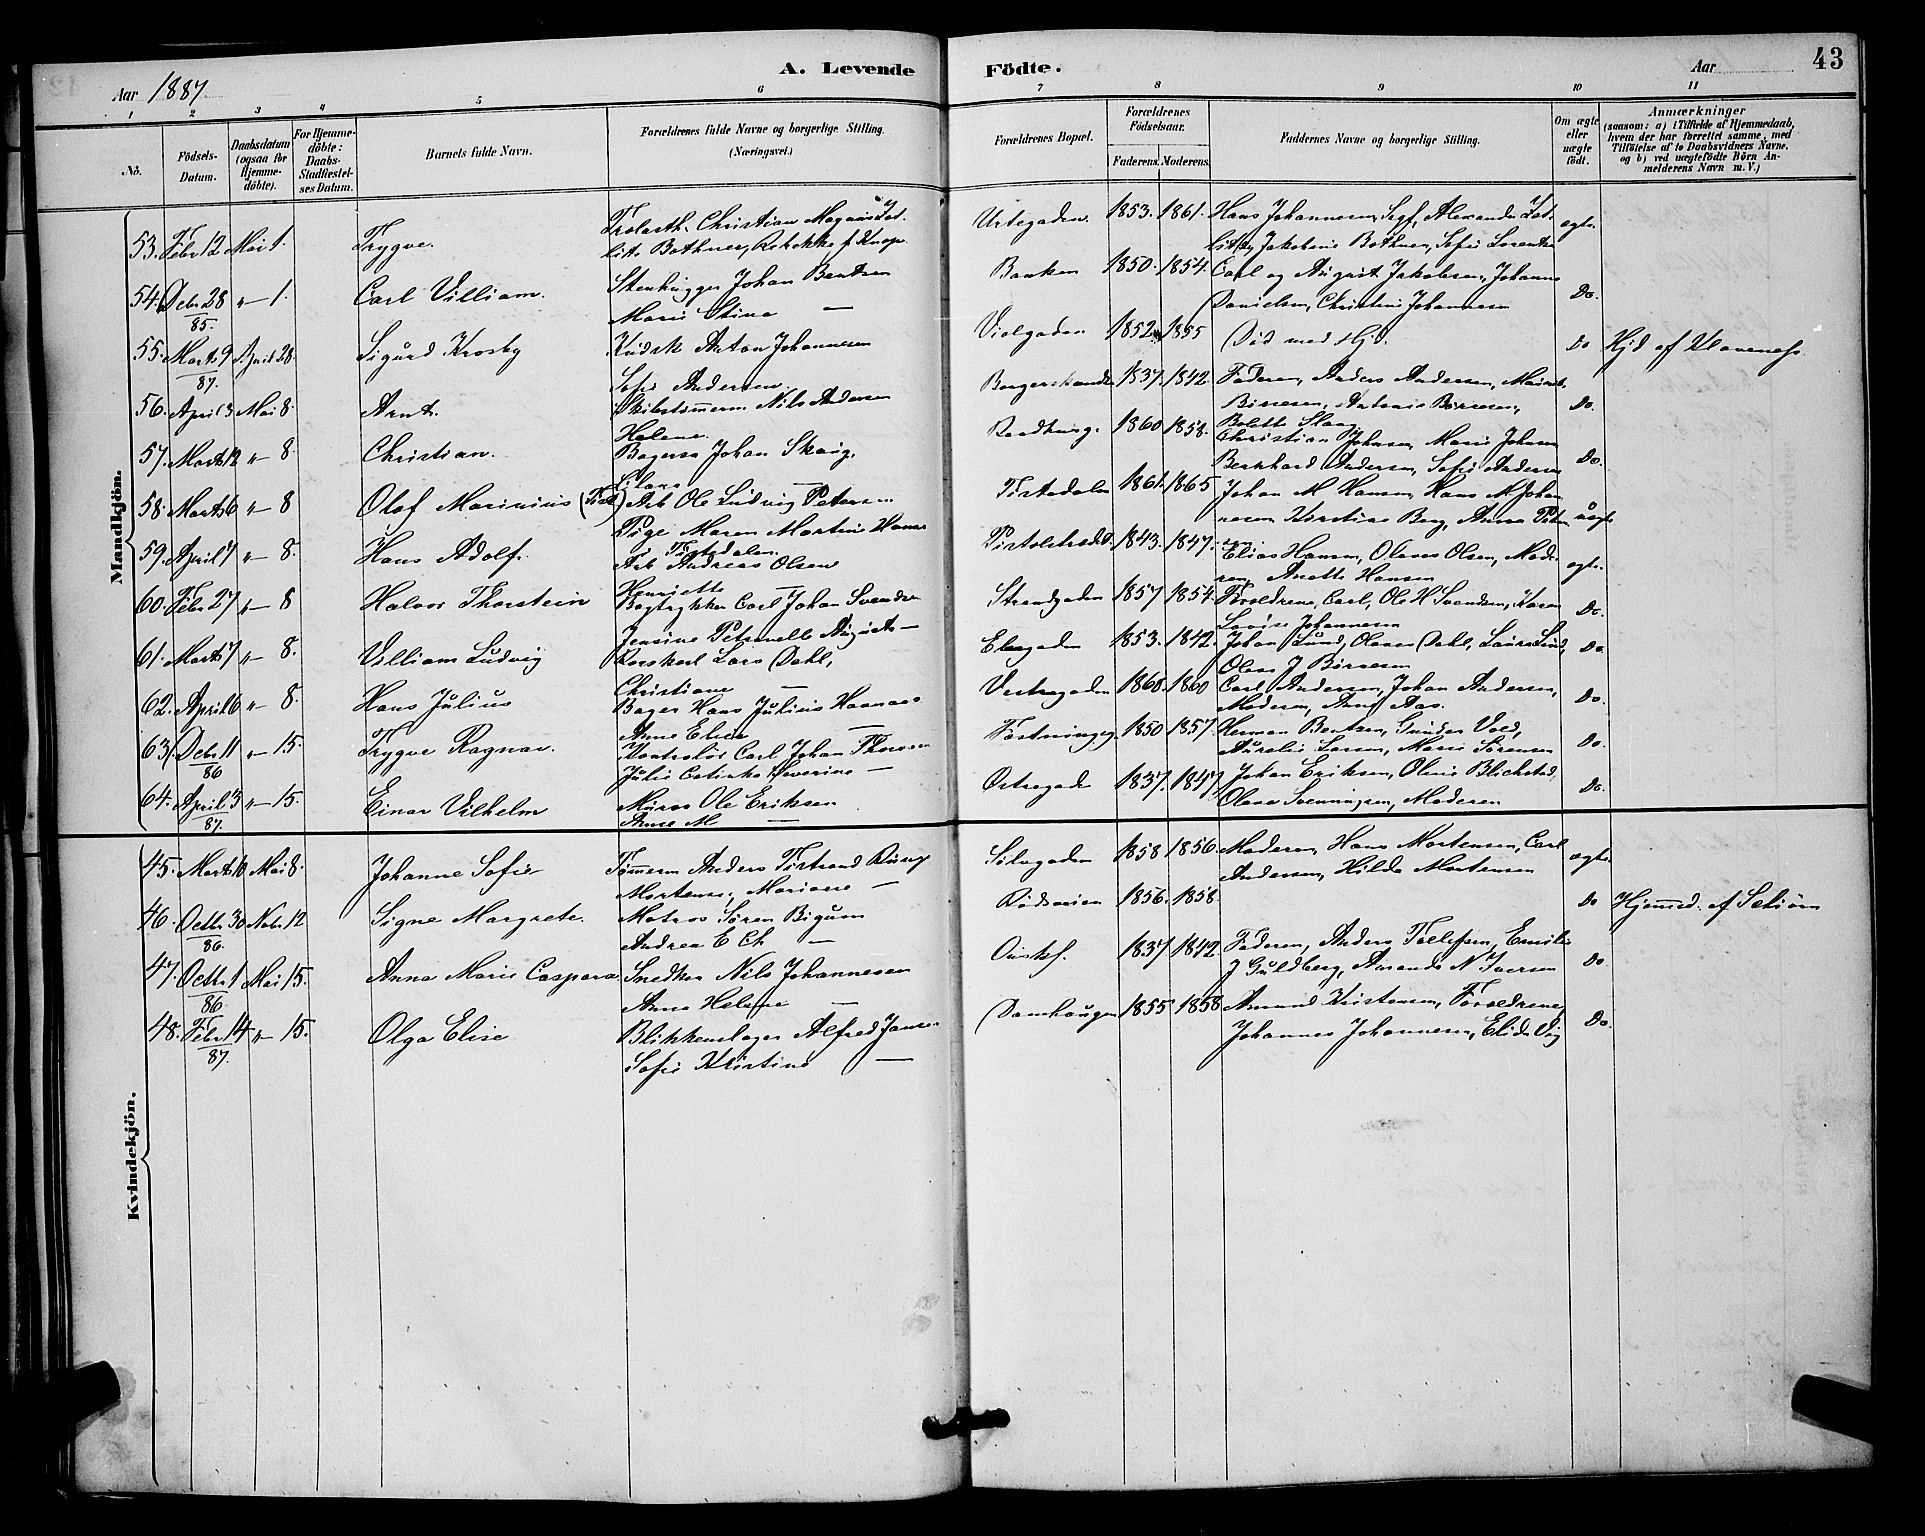 A. Levende Födte.
43
Aar 1887
Aar
1 2 3 4 5 6 7 8 9 10 11
No.
Födsels-Datum.
Daabsdatum (ogsaa for Hjemmedöbte).
For Hjemmedöbte: Daabs-Stadfæstelses Datum.
Barnets fulde Navn.
Forældrenes fulde Navne og borgerlige Stilling. (Næringsvei.)
Forældrenes Bopæl.
Forældrenes Födselsaar.
Faderens. Moderens.
Faddernes Navne og borgerlige Stilling.
Om ægte eller uægte födt.
Anmærkninger
(saasom: a) i Tilfælde af Hjemmedaab, hvem der har forrettet samme, med Tilföielse af to Daabsvidners Navne, og b) ved uægtefödte Börn Anmelderens Navn m. V.)
Mandkjön.
53. Febr 12 Mai 1. Trygve. Christian Magnus Bothner, Rebekka f Knap Urtegaden 1853. 1861. Hans Johannesen, Alexander Jakobine Bothner, Sofie Lorentzen ægte.
54. Debr 28/85. " 1. Carl Villiam. Stenhugger Johan Bentsen Marie Stine — Banken 1850. 1854. Carl og August Jakobsen, Johanne Danielsen, Christine Johannesen Do.
55. Marts 9/87. April 28 Sigurd Krosby Kudsk Anton Johannesen Sofie Andersen. Violgaden 1852 1855 Död med Hjd. Do Hjd af Klavenæs
56. April 3 Mai 8. Arnt. Skibstömerm Nils Andersen Helene. Borgerskandsen 1837. 1842. Faderen, Anders Andersen, Börresen, Börresen, Bolette Skaug Do.
57. Marts 12 " 8. Christian. Bagersv Johan Skaug. 1860 1858. Christian Johnsen, Marie Johnsen Bernhard Andersen, Sofie Andersen Do.
58. Marts 6 " 8 Olaf Marinius Arb Ole Ludvig Petersen Pige Maren Martine Hansen Tistedalen Tistedalen 1861. 1865 Johan M Hansen, Hans M Johannesen Kirstine Berg, Anna Petersen uægte
59. April 7 " 8. Hans Adolf. Arb Andreas Olsen Henriette — 1843. 1847. Elias Hansen, Olaves Olsen, Moderen, Anette Hansen ægte.
60. Febr 27 " 8 Halvor Thorstein Bogtrykker Carl Johan Svendsen Jensine Petronelle Auguste — Strandgaden 1857 1854. Forældrene, Carl, Ole H Svendsen, Karen Lovise Johannesen Do.
61. Marts 7 " 8. Villiam Ludvig Lars Dahl, Christiane — Elvegaden 1853. 1842. Johan Lund, Olaves Dahl, Laura Lund, Olava J Börresen Do.
62. April 6 " 8. Hans Julius Bager Hans Julius Haanæs Anne Elise — Vestregaden 1860. 1860 Carl Andersen, Johan Andersen, Moderen, Anne Aas. Do.
63 Debr 11/86 " 15. Trygve Ragnar. Kontrolör Carl Johan Thoresen Julie Catinka Severine — Fæstningsg. 1850 1857. Herman Bentsen, Gunder Vold, Aurelie Larsen, Marie Sörensen Do.
64. April 3/87. " 15. Einar Vilhelm Murer Ole Eriksen Anne M — Östregade 1837. 1847 Johan Eriksen, Olene Blichstad, Olava Svenningsen, Moderen Do.
Kvindekjön.
45. Marts 10 Mai 8. Johanne Sofie Tömmerm Anders Mortensen, Mariane — Sölvgaden 1858 1856. Moderen, Hans Mortensen, Carl Andersen, Hilda Mortensen ægte.
46. Octbr 30/86. Novbr 12 Signe Margrete. Matros Sören Bigum Andrea E Ch — Rödsveien 1856. 1858. Do Hjemed. af
47. Octbr 1/86 Mai 15. Anna Marie Caspara Snedker Nils Johannesen Anne Helene — 1837 1842 Faderen, Anders Tollefsen, Emilie J Guldberg, Amanda N Iversen Do
48. Febr 14/87. " 15. Olga Elise Blikkenslager Alfred Jansen Sofie Kristine — Damhaugen 1855 1858 Amund Kristensen, Forældrene, Johannes Johannesen, Elida Do.